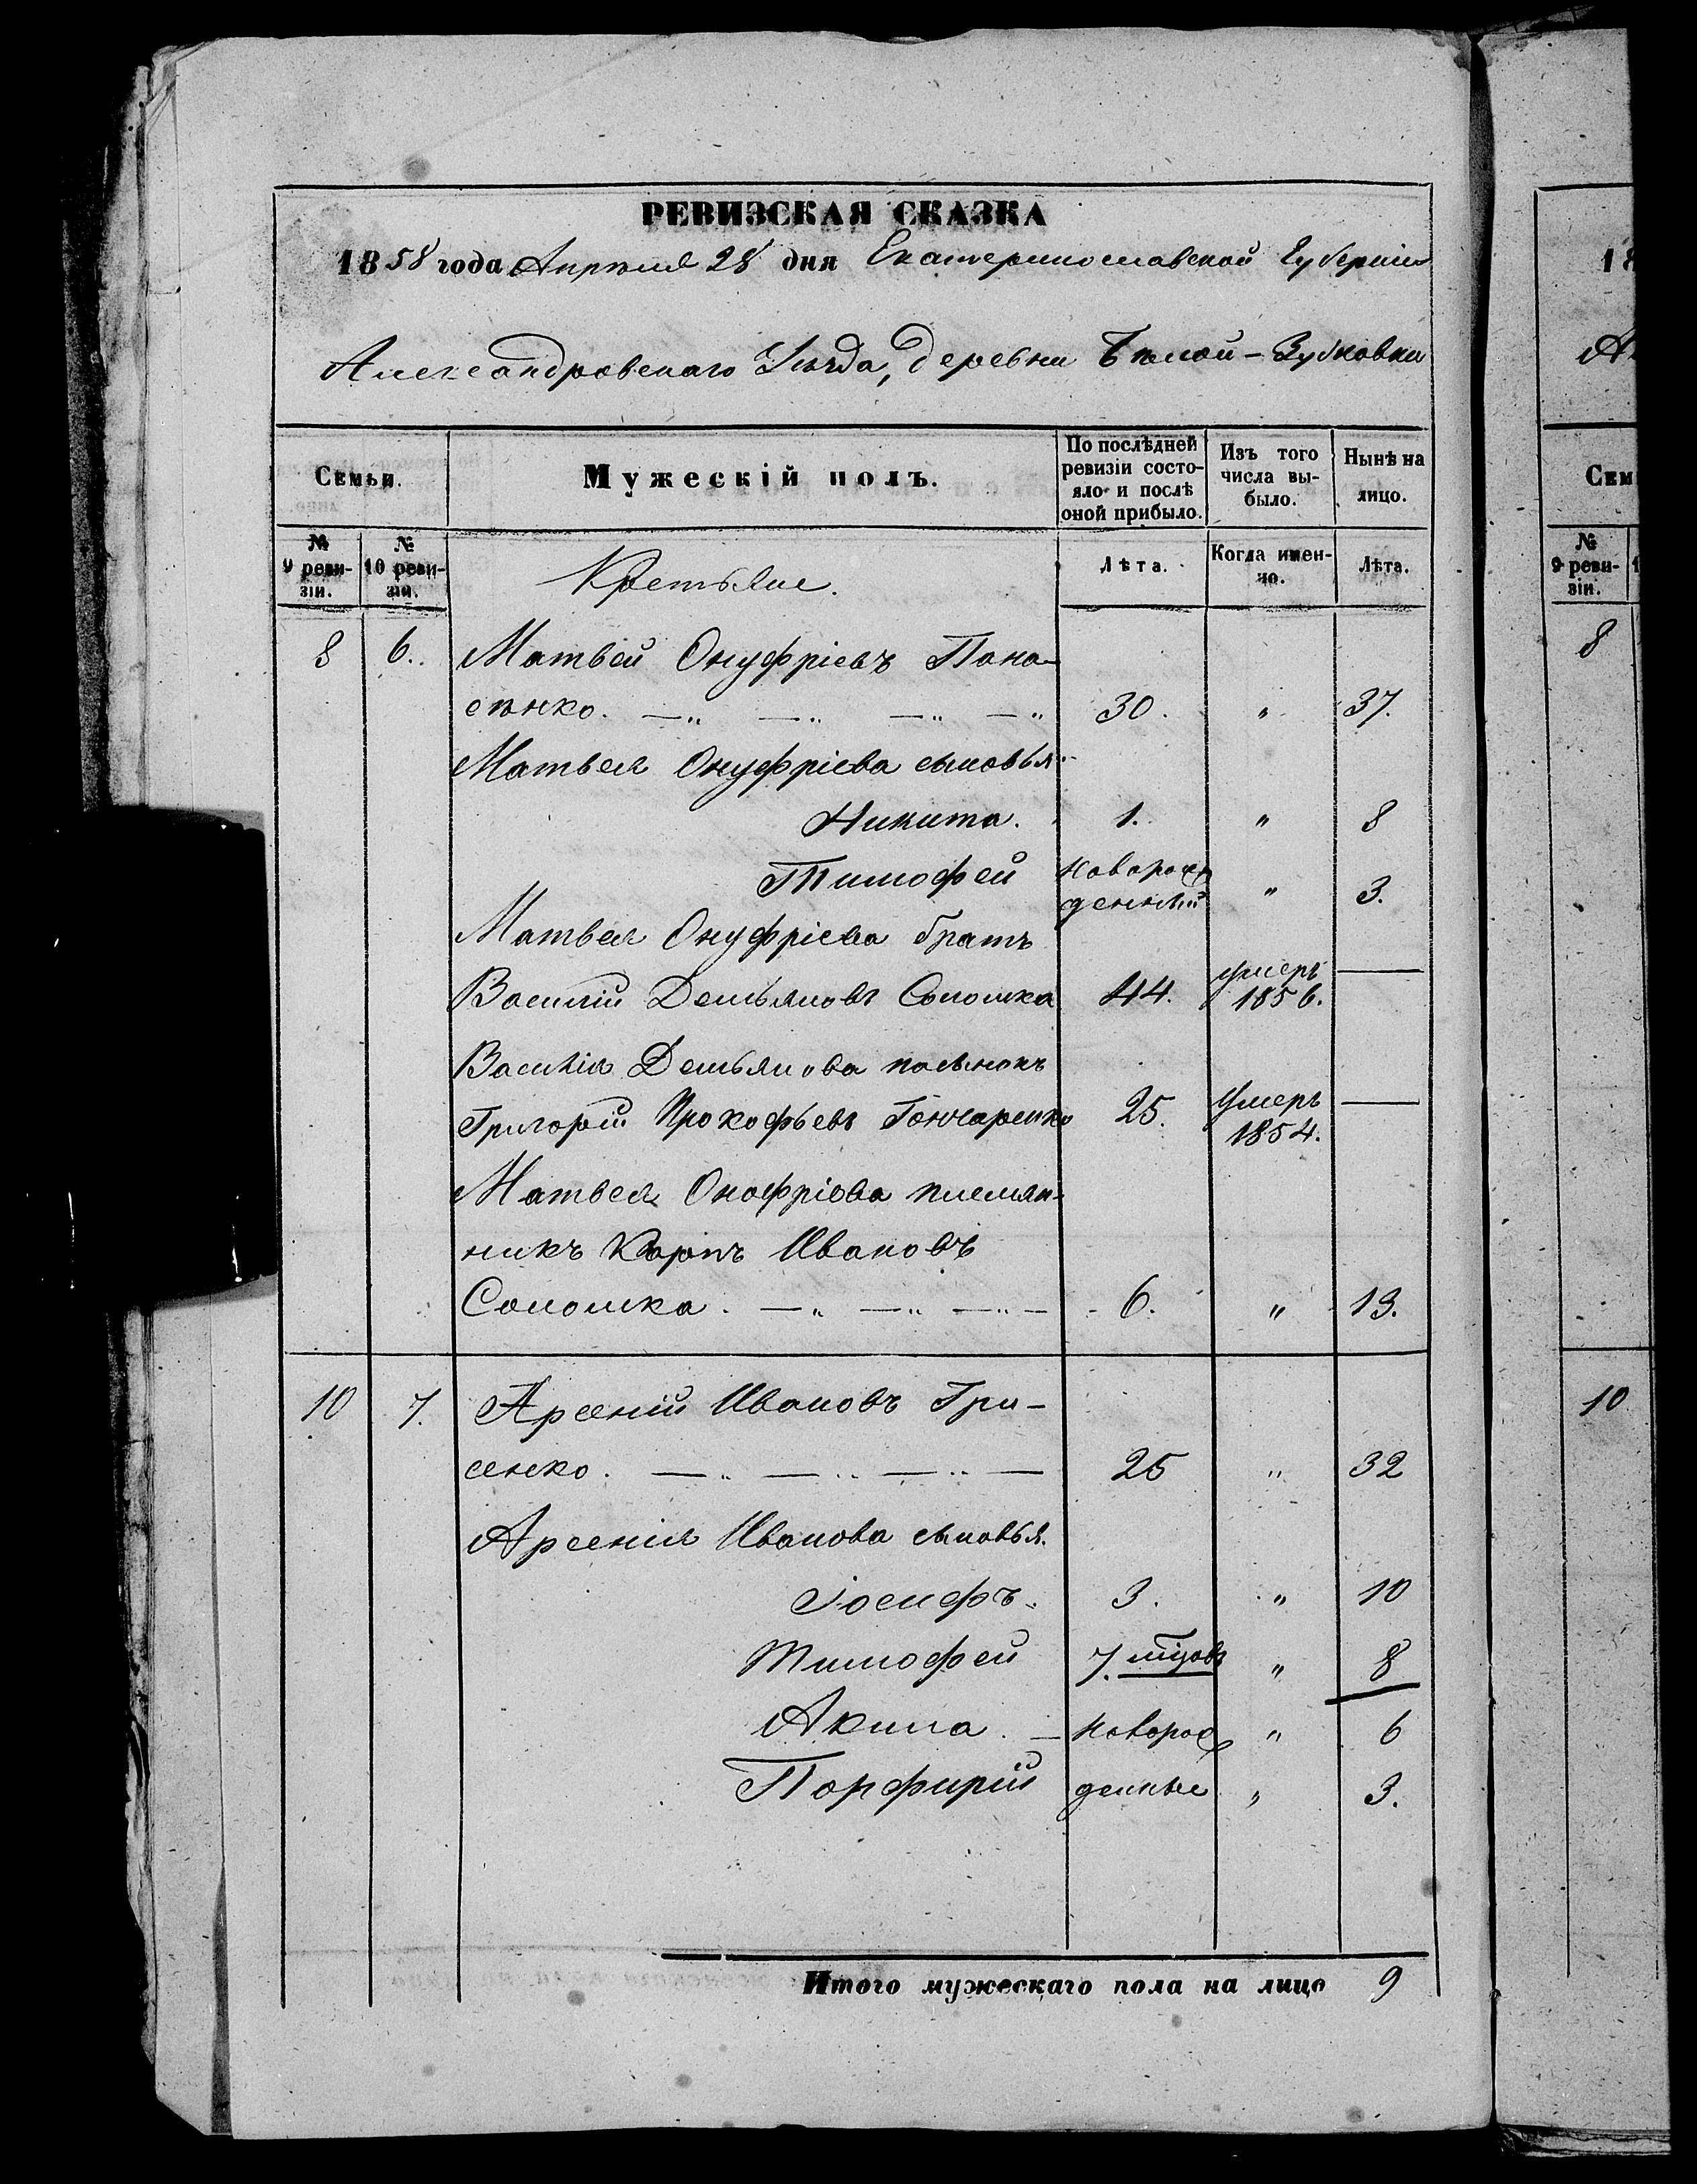 РЕВИЗСКАЯ СКАЗКА
1858 года Апреля 28 дня Екатеринославской Губерніи
Александровскаго Уѣзда, деревни Бѣлой-Зубковки
Семьи.
Мужескій полъ.
По послѣдней ревизіи состояло и послѣ оной прибыло.
Изъ того числа выбыло.
Нынѣ на лицо.
№ 9 ревизіи.
№ 10 ревизіи.
Крестьяне.
Лѣта.
Когда именно.
Лѣта.
8 6. Матвей Онуфріевъ Пана-
сѣнко. —„ —„ —„ —„ 30. „ 37.
Матвея Онуфріева сыновья
Никита. 1. „ 8
Тимофей новорож-
денный „ 3.
Матвея Онуфріева братъ
Василій Демьяновъ Соломка 44. умеръ 1856. —
Василія Демьянова пасынокъ
Григорій Прокофьевъ Гончаренко 25. Умеръ 1854. —
Матвея Онофріева племян-
никъ Карпъ Ивановъ
Соломка. —„ —„ —„— 6. „ 13.
10 7. Арсеній Ивановъ Гри-
сенко. —„ —„ —„ — 25 „ 32
Арсенія Иванова сыновья.
Іосифъ. 3. „ 10
Тимофей 7. мцовъ „ 8
Акима. — новорож „ 6
Порфирій денные „ 3.
Итого мужескаго пола на лицо 9
18
А
Сем
№ 9 ревизіи.
8
10